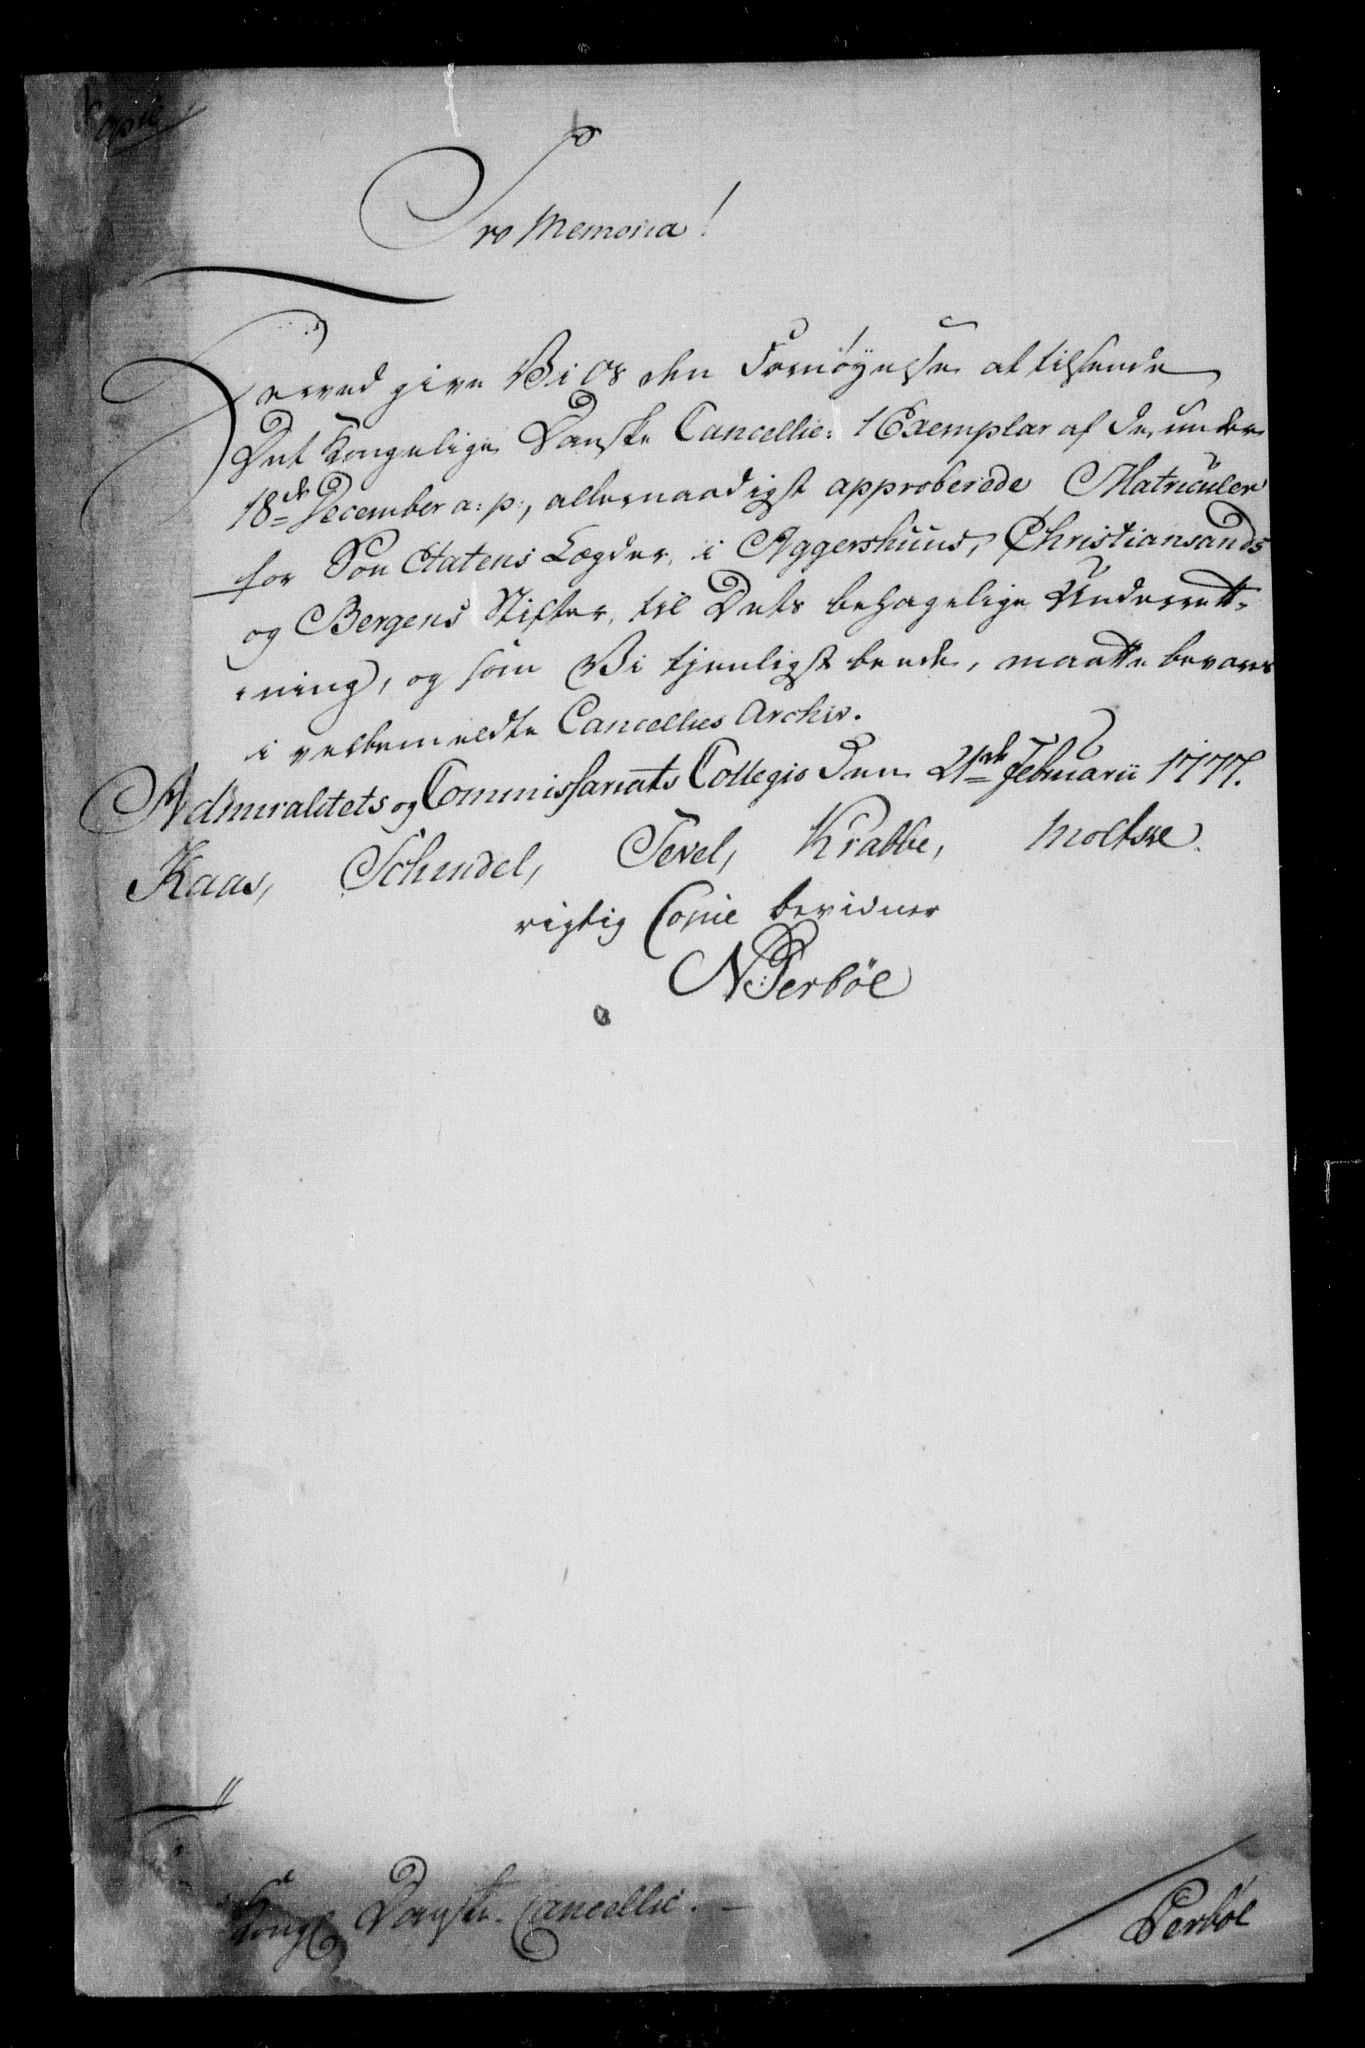 Copie
Pro Memoria!
Herved give Vi Os den Fornöyelse at tilsende
Det Kongelige Danske Cancellie: 1 Exemplar af de under
18de December a: p:, allernaadigst approberede Matriculer
for Söe Etatens Lægder, i Aggershuus, Christiansands
og Bergens Stifter, til Dets behagelige Underrett-
ning, og som Vi tjenligst bede, maatte bevares
i velbemeldte Cancellies Archiv.
Admiralitets og Commissariats Collegio Den 21de Februarii 1777.
Kaas, Schindel, Tevel, Krabbe, Moltke.
rigtig Copie bevidner
N: Perböl
Kongl Danske Cancellie.
Perböl